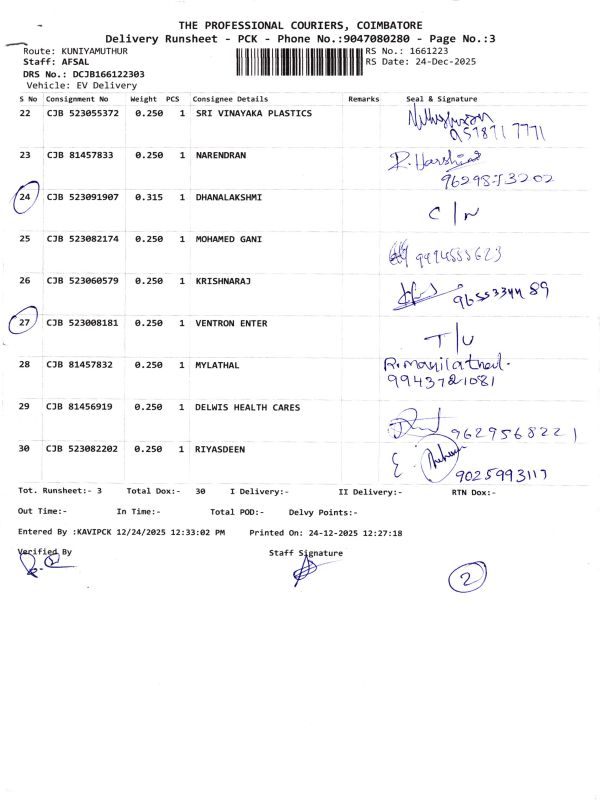 THE PROFESSIONAL COURIERS, COIMBATORE
Delivery Runsheet - PCK - Phone No.:9047080280 - Page No.:3
Route: KUNIYAMUTHUR RS No.: 1661223
Staff: AFSAL RS Date: 24-Dec-2025
DRS No.: DCJB166122303
Vehicle: EV Delivery
S No Consignment No Weight PCS Consignee Details Remarks Seal & Signature
22 CJB 523055372 0.250 1 SRI VINAYAKA PLASTICS
23 CJB 81457833 0.250 1 NARENDRAN
24 CJB 523091907 0.315 1 DHANALAKSHMI C/N
25 CJB 523082174 0.250 1 MOHAMED GANI
26 CJB 523060579 0.250 1 KRISHNARAJ
27 CJB 523008181 0.250 1 VENTRON ENTER T/U
28 CJB 81457832 0.250 1 MYLATHAL
29 CJB 81456919 0.250 1 DELWIS HEALTH CARES 9629568221
30 CJB 523082202 0.250 1 RIYASDEEN 9025993117
Tot. Runsheet:- 3 Total Dox:- 30 I Delivery:- II Delivery:- RTN Dox:-
Out Time:- In Time:- Total POD:- Delvy Points:-
Entered By :KAVIPCK 12/24/2025 12:33:02 PM Printed On: 24-12-2025 12:27:18
Verified By Staff Signature
2